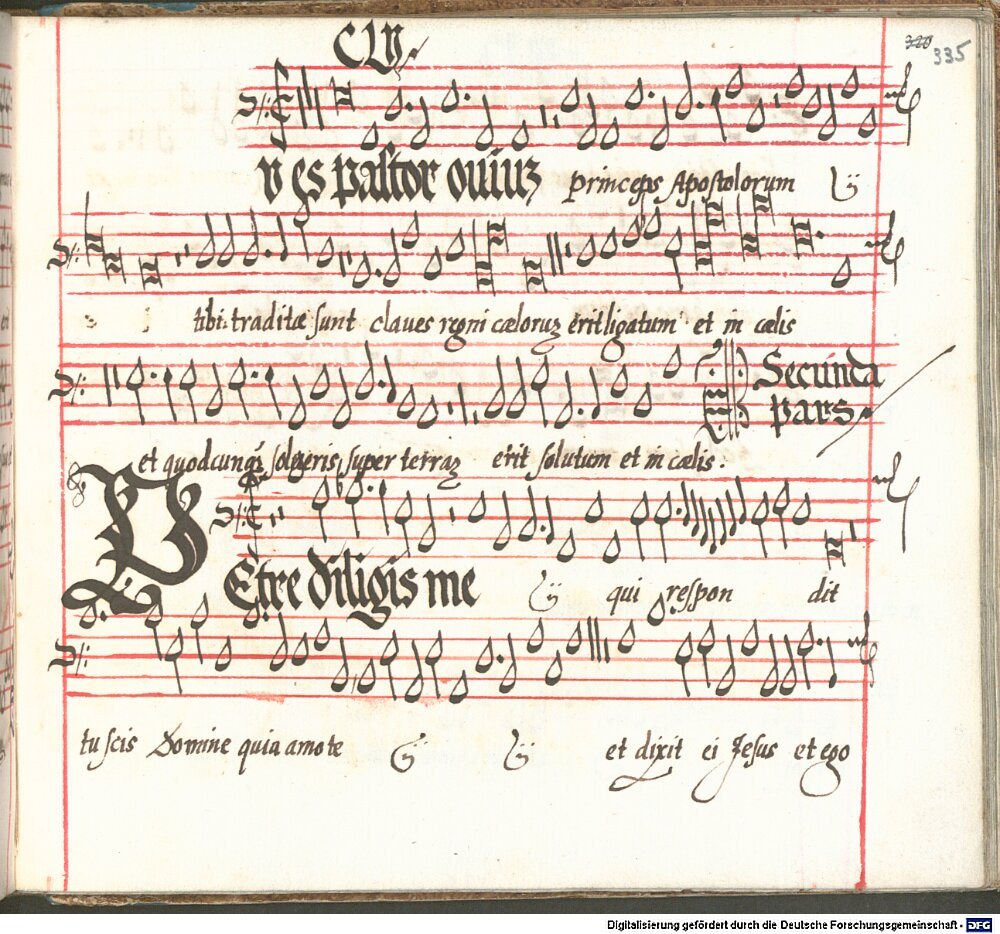 CLV
320 335
v es pastor ouiuz Princeps Apostolorum ij
tibi traditæ sunt claues regni cæloruz erit ligatum et in cælis
Secunda
pars
et quodcunq; solueris super terraz erit solutum et in cælis:
PEtre diligis me ij qui respon dit
tu scis Domine quia amo te ij ij et dixit ei Jesus et ego
Digitalisierung gefördert durch die Deutsche Forschungsgemeinschaft - DFG